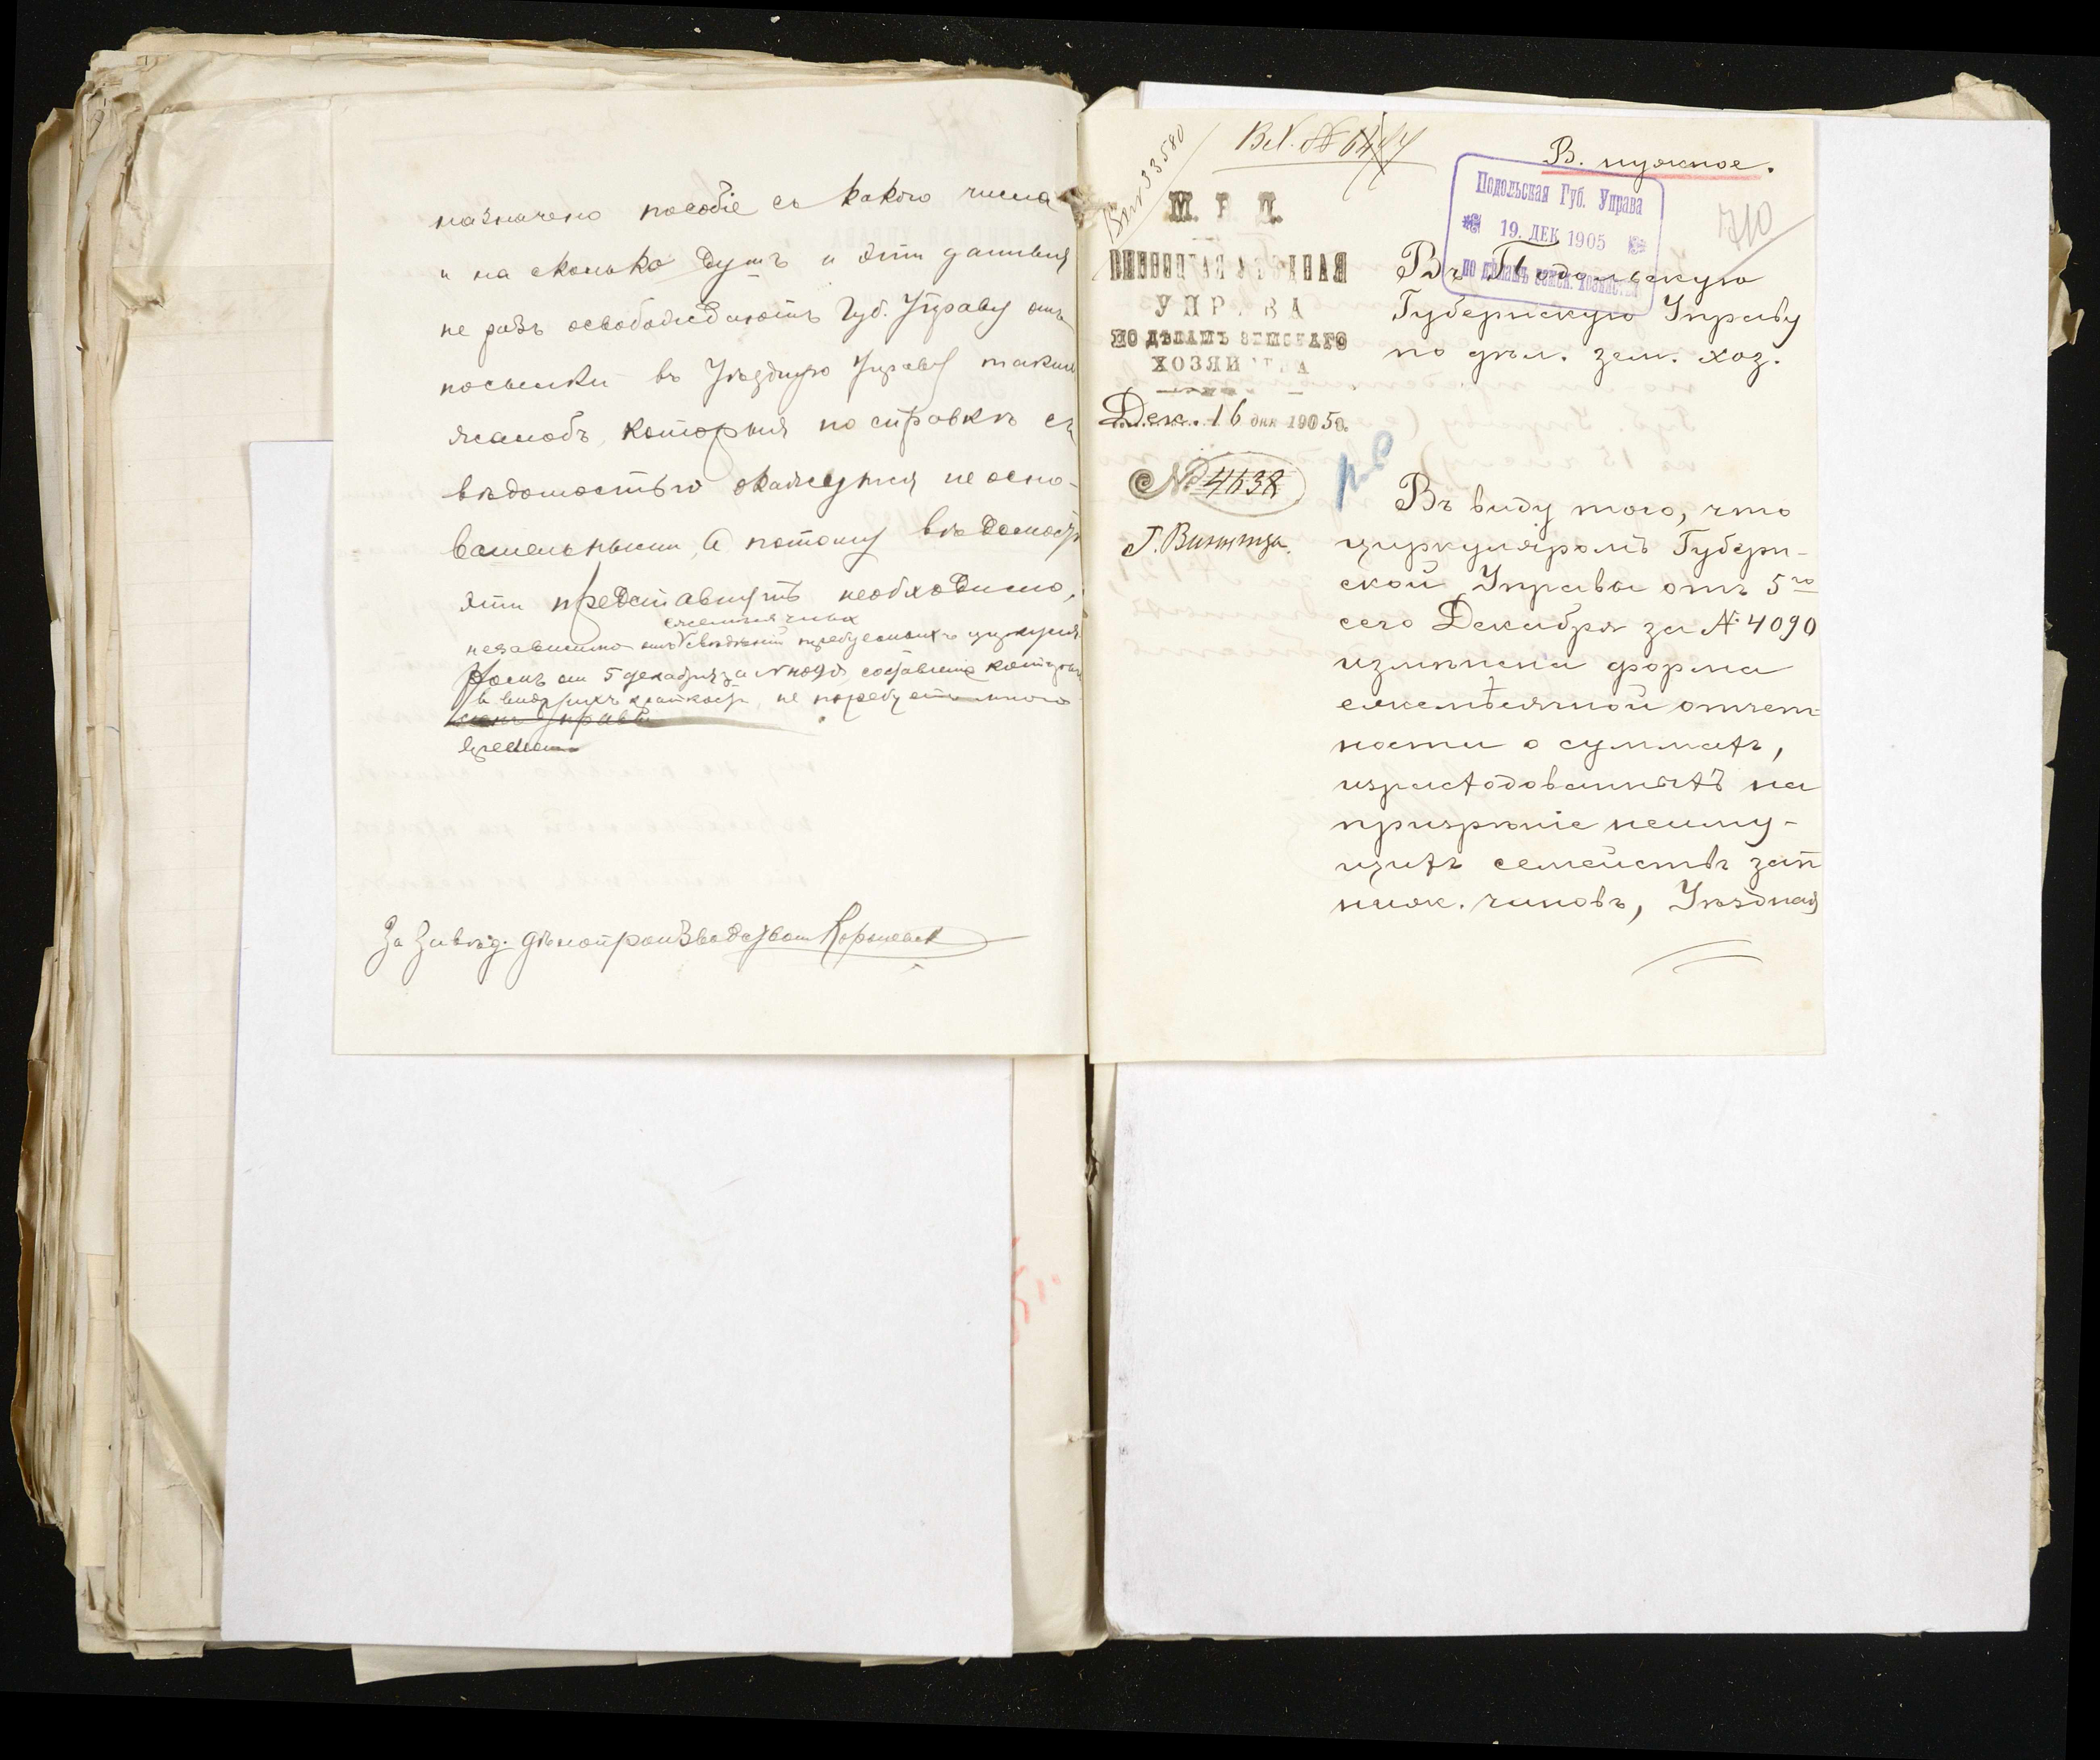 назначено пособіе съ какого числа
и на сколько душъ и эти данныя
не разъ освобождаютъ Губ. Управу отъ
посылки въ Уѣздную Управу такихъ
жалобъ, которыя по справкѣ съ
вѣдомостью окажутся не осно-
вательными, а потому вѣдомости
эти представлять необходимо,
ежемѣсячныхъ
независимо отъ свѣдѣній требуемыхъ циркуля-
ромъ отъ 5 декабря за № 4090, составленіе которыхъ
въ виду ихъ краткости, не потребуетъ много
времени
За Завѣд. дѣлопроизводствомъ
Вх. №
В. нужное.
710
М. В. Д.
ВИННИЦКАЯ УѢЗДНАЯ
УПРАВА
ПО ДѢЛАМЪ ЗЕМСКАГО
ХОЗЯЙСТВА
Дек. 16 дня 1905 г.
№ 4638
Г. Винница.
Подольская Губ. Управа
19. ДЕК 1905
по дѣламъ земск. хозяйства
Въ Подольскую
Губернскую Управу
по дѣл. зем. хоз.
Въ виду того, что
циркуляромъ Губерн-
ской Управы отъ 5го
сего Декабря за № 4090
измѣнена форма
ежемѣсячной отчет-
ности о суммахъ,
израсходованныхъ на
призрѣніе неиму-
щихъ семействъ зап
ниж. чиновъ, Уѣздная